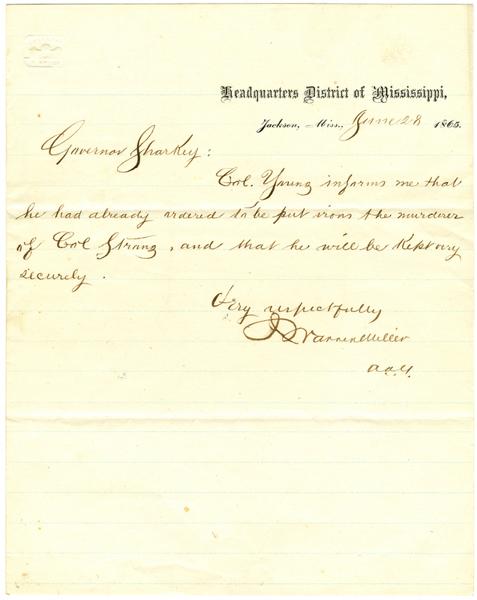 Headquarters District of Mississippi,
Jackson, Miss., June 28 1865.
Governor Sharkey:
Col. Young informs me that
he had already ordered to be put irons the murderer
of Col Strong, and that he will be kept very
securely.
Very respectfully
J Warren Miller
A.A.G.